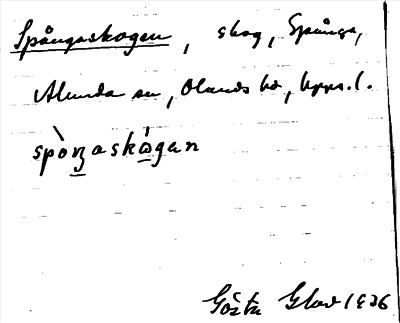 Spångaskogen, skog, Spånga,
Alunda sn, Olands hd, Upps. l.
spòŋaskógan
Gösta Glad 1926